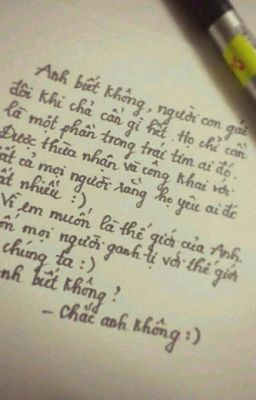 Anh biết không, người con gái
đôi khi chả cần gì hết. Họ chỉ cần
là một phần trong trái tim ai đó.
Được thừa nhận và công khai với
ất cả mọi người rằng họ yêu ai đó
ất nhiều :)
Vì em muốn là thế giới của Anh.
ốn mọi người ganh tị với thế giới
chúng ta :)
nh biết không?
- Chắc anh không :)